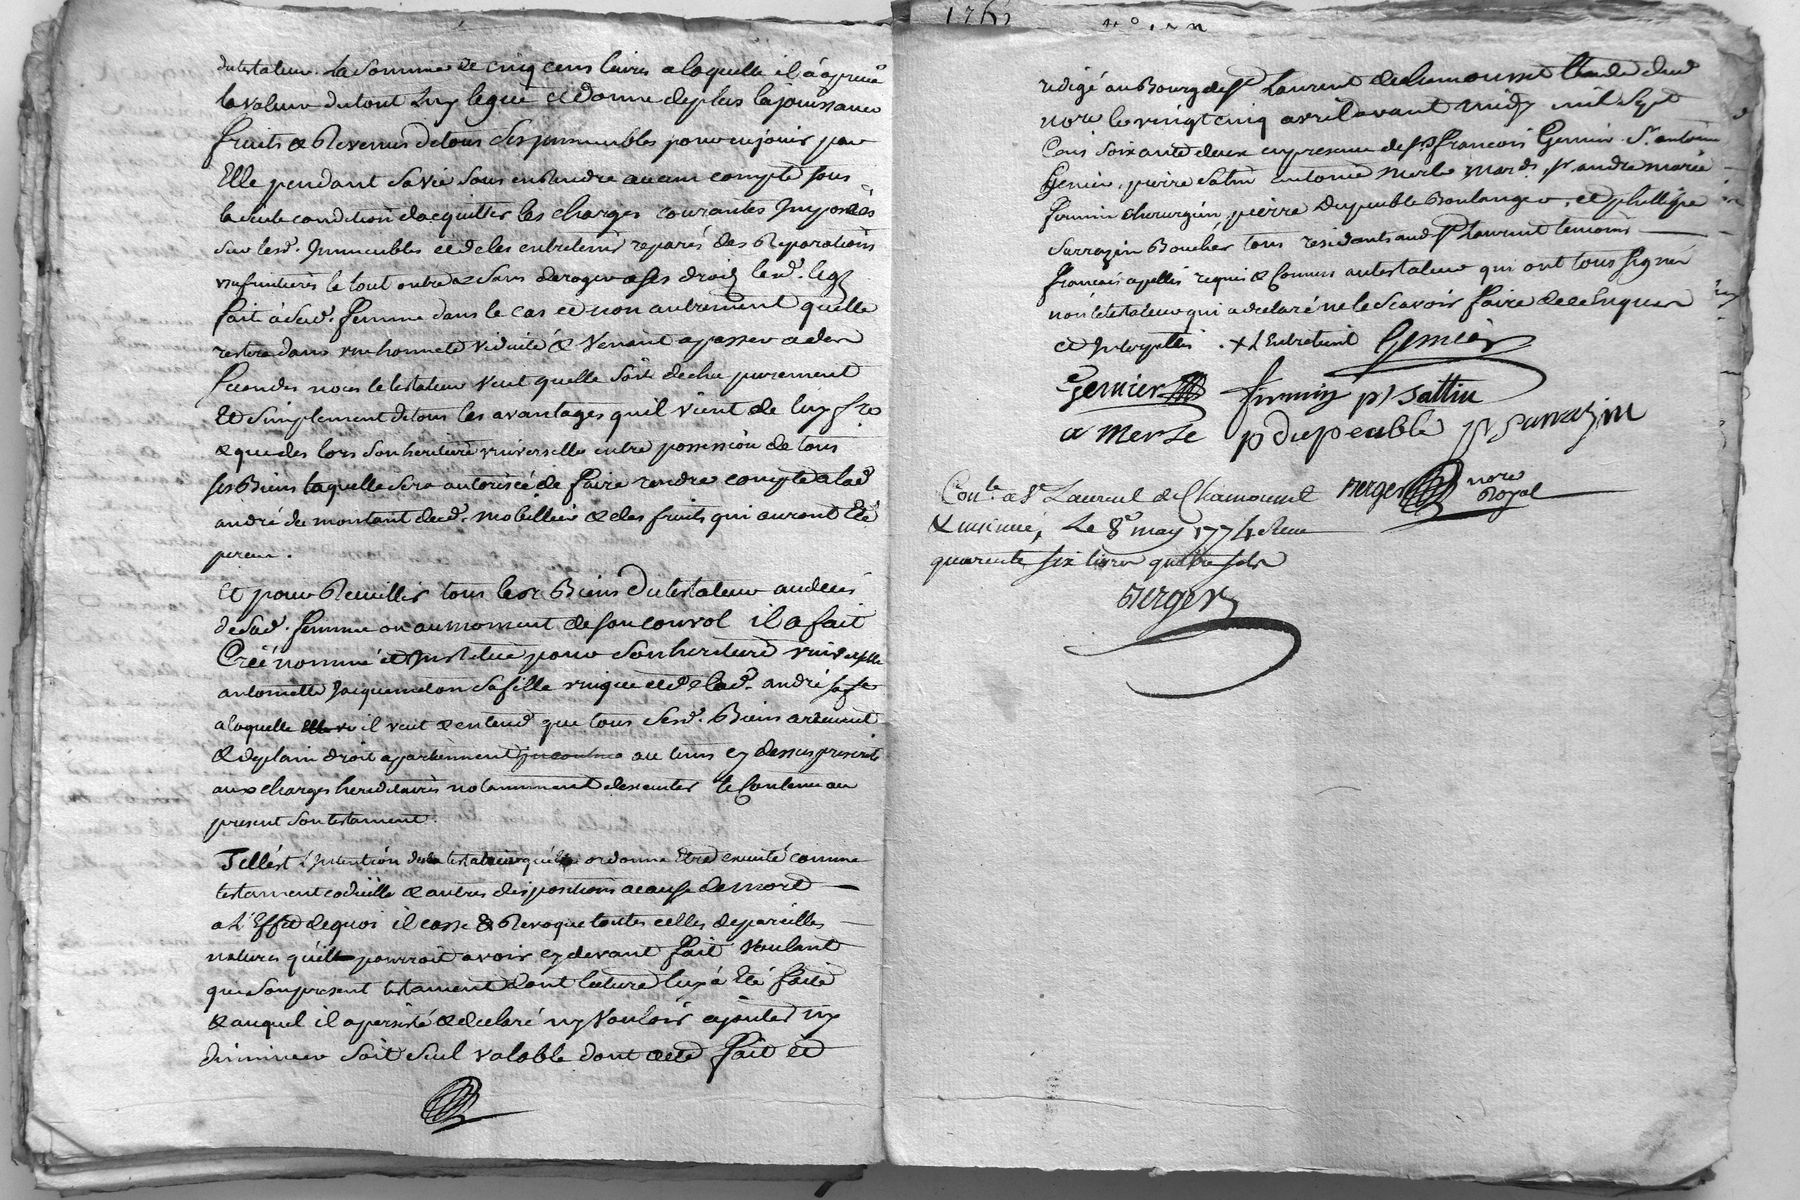 du testateur. la somme de cinq cens livres a laquelle il a apretié
la valeur du tout luy legue et donne de plus la jouissance
fruits & Revenus de tous ses immeubles pour en jouir par
Elle pendant sa vie sans en Rendre aucun compte sous
la seule condition d'acquitter les charges courantes Imposées
sur lesd. Immeubles et de les entretenir reparés des Reparations
usufruitieres le tout outre & sans deroger a ses droits lesd. legs
fait à sad. femme dans le cas et non autrement quelle
restera dans une honneste viduité & venant a passer a des
secondes noces le testateur veut quelle soit dechue purement
et simplement de tous les avantages quil vient de luy fre
& que des lors son heritiere universelle entre possession de tous
ses Biens laquelle sera autorisée de faire rendre compte a lad
andré du montant dud. mobillier & des fruits qui auront Eté
percu.
Et pour Recuillir tous les Biens du testateur au deces
de sad. femme ou au moment de son convol il a fait
Créé nommé et Institué pour son heritiere universelle
antoinette Jacquemeton sa fille unique et de lad. andré sa fe
a laquelle il veut & entend que tous sesd. Biens arrivent
& de plain droit apartiennent au tems cy dessus prescrit
aux charges hereditaires notamment d'executer le Contenu au
present son testament.
Telle est l'Intention du testateur qu'il ordonne Etre executé comme
testament codicille & autres dispositions a cause de mort
a L'Effet de quoi il casse & Revoque toutes celles de pareilles
natures qu'il pourroit avoir cy devant fait Voulant
que son present testament dont lecture luy à Eté faite
& auquel il a persisté & declaré n'y Vouloir ajouter ny
diminuer soit seul valable dont acte fait et
176
redigé au Bourg de St Laurent de chamousset Etude dud
nore le vingt cinq avril avant midy mil Sept
Cens soixante deux en presence de sr françois Gemier Sr antoine
Gemier, pierre satin antoine merle mards, sr. andré marie
firmin chirurgien, pierre Dupeuble Boulanger, et phillipe
Sarrazin Boucher tous residants aud St Laurent temoins
français apellés requis & Connus au testateur qui ont tous signés
non le testateur qui a declaré ne le Scavoir faire de ce Enquis
et Interpellés . x L'Entretient Gemier
Gemier firmin pr Sattin
a merle p dupeuble ph Sarrazin
Conlé a St Laurent de Chamousset Berger nore Royal
& insinué, Le 8e may 1774 Reçu
quarente six livres quatre sols
Berger